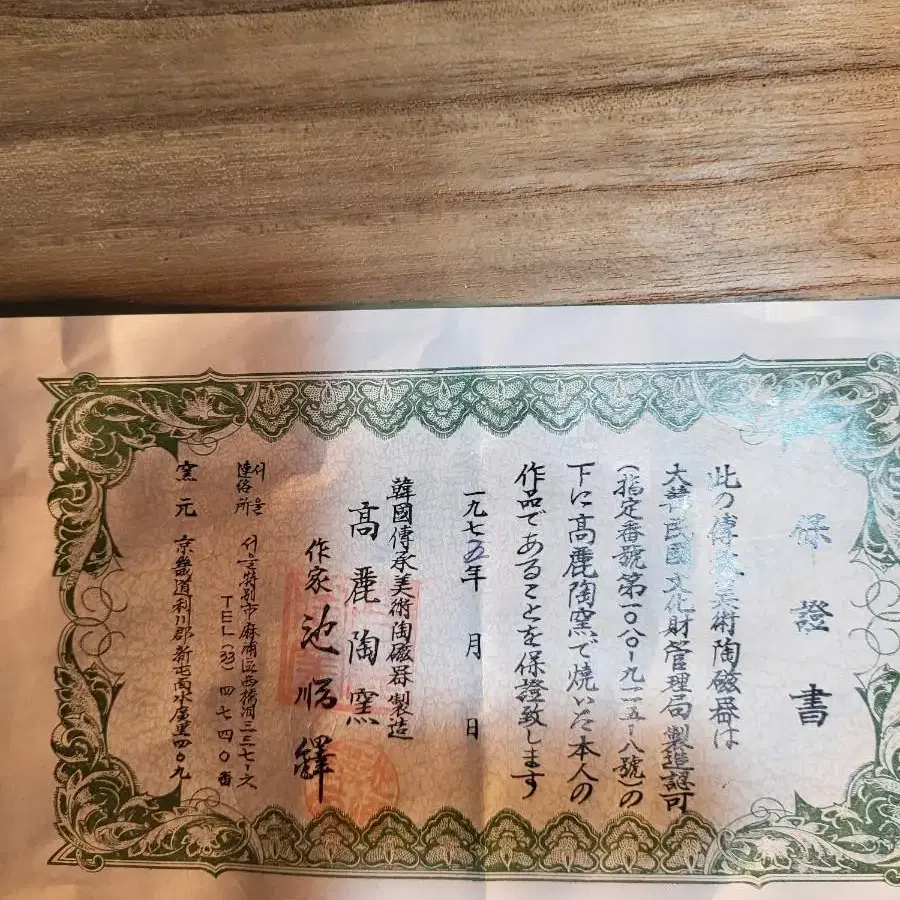 保證書
此の傳承美術陶磁器は
大韓民國文化財管理局製造認可
(指定番號第一〇八〇-九一二五-八號)の
下に高麗陶窯で焼いた本人の
作品であることを保證致します
一九七五年 月 日
韓國傳承美術陶磁器製造
高麗陶窯
作家 池順鐸
서울連絡所 서울特別市麻浦區西橋洞三三七-
TEL(33)四七四〇番
窯元 京畿道利川郡新屯面水廣里四〇九